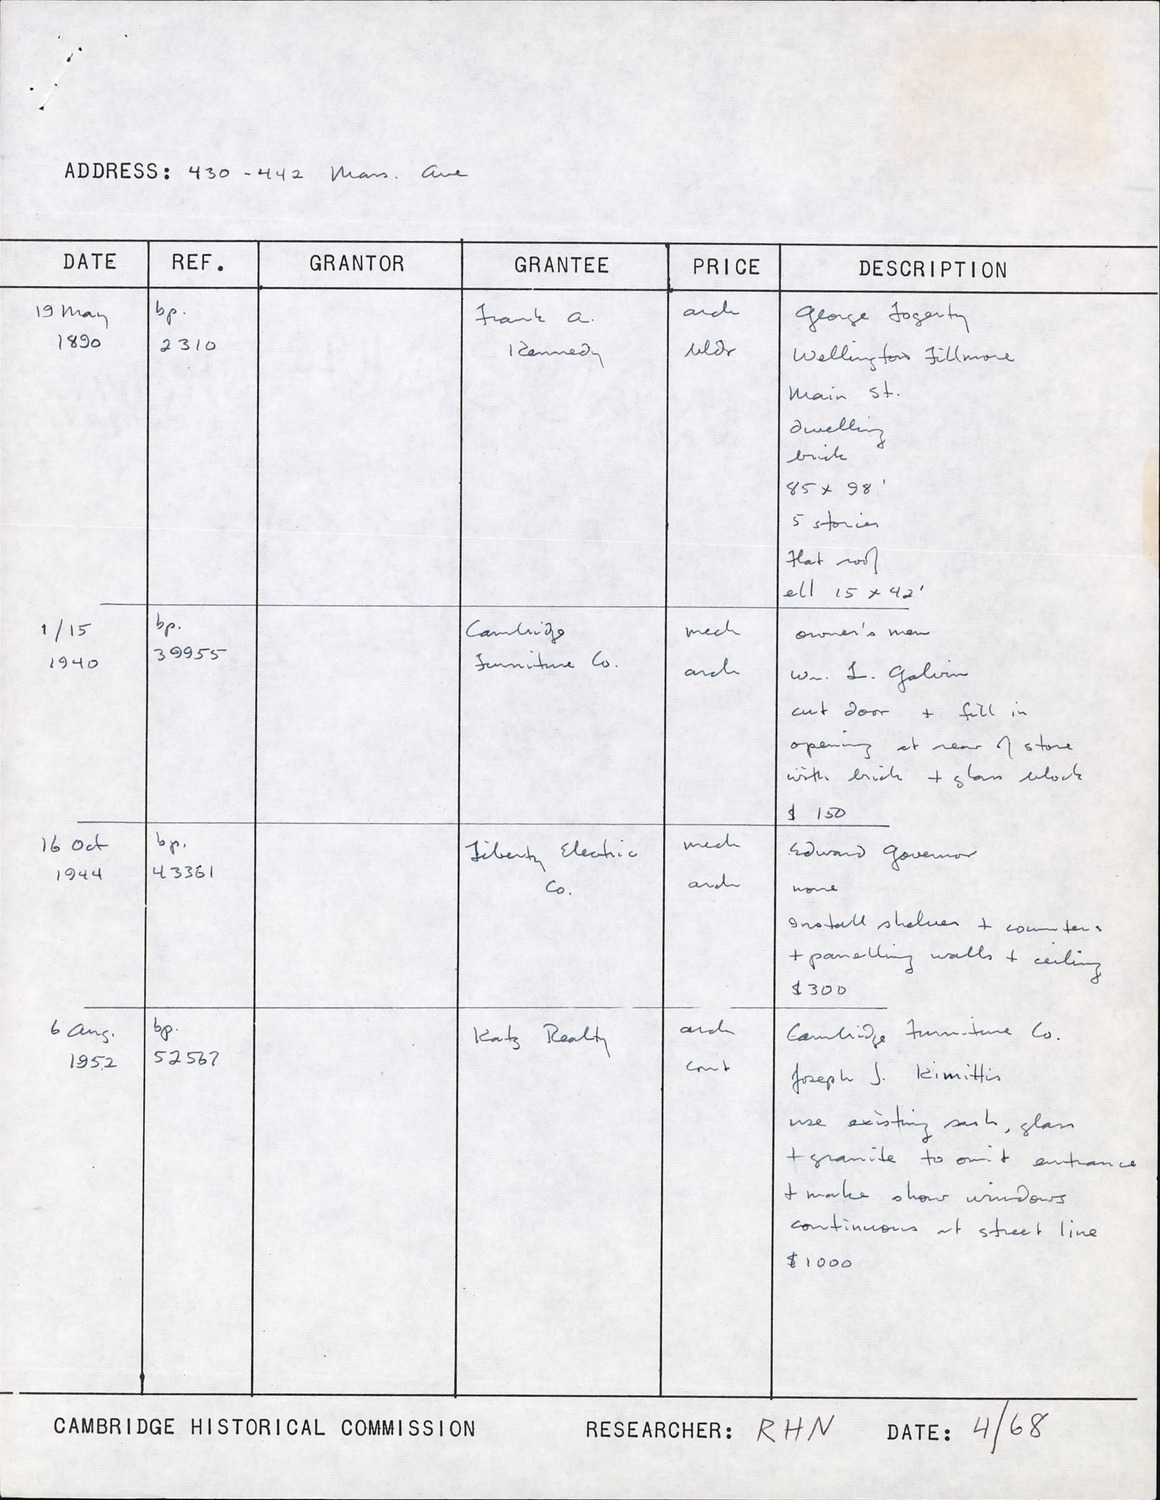 ADDRESS: 430-442 Mass. Ave
DATE REF. GRANTOR GRANTEE PRICE DESCRIPTION
19 May bp. Frank A. arch George Fogerty
1890 2310 Kennedy bldr Wellington Fillmore
Main St.
dwelling
brick
85 x 98'
5 stories
flat roof
ell 15 x 42'
1/15 bp. Cambridge mech owner's men
1940 39955 Furniture Co. arch Wm. L. Galvin
cut door + fill in
opening at rear of store
with brick + glass block
$ 150
16 Oct bp. Liberty Electric mech Edward Governor
1944 43361 Co. arch none
install shelves + counters
+ panelling walls + ceiling
$300
6 Aug. bp. Katz Realty arch Cambridge Furniture Co.
1952 52567 cont Joseph J. Kimittis
use existing sash, glass
+ granite to omit entrance
+ make show windows
continuous at street line
$1000
CAMBRIDGE HISTORICAL COMMISSION RESEARCHER: RHN DATE: 4/68